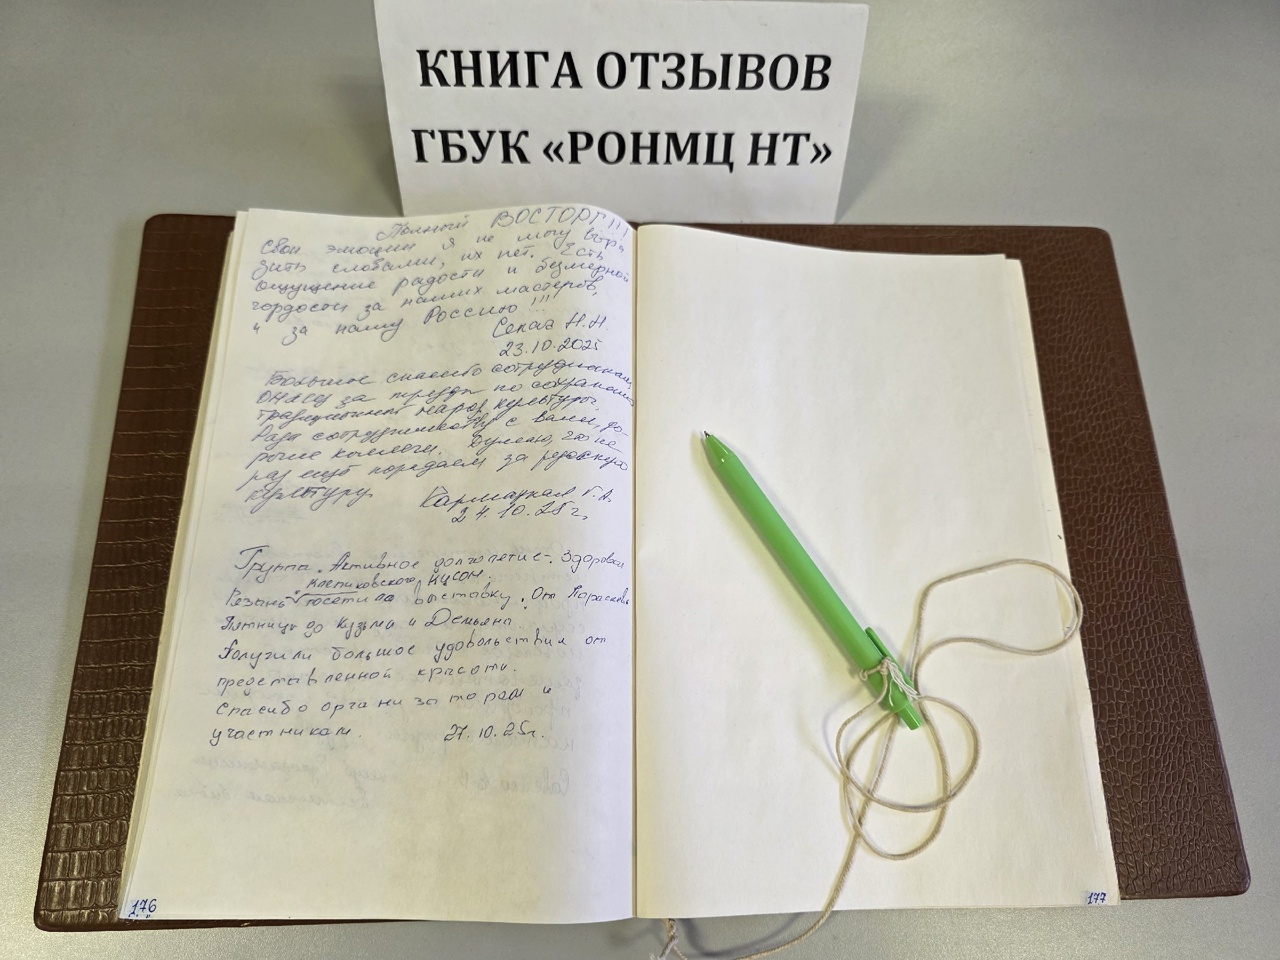 КНИГА ОТЗЫВОВ
ГБУК «РОНМЦ НТ»
Полный ВОСТОРГ!!!
Свои эмоции я не могу выра
зить словами, их нет. Есть
ощущение радости и безмерной
гордости за наших мастеров,
и за нашу Россию!!!
Н.Н.
23.10.2025
Большое спасибо сотрудникам
за труды по сохранению
традиционной народ. культуры.
Рада сотрудничеству с вами, до-
рогие коллеги. Думаю, что не
раз ещё порадеем за русскую
культуру.
Г.А.
24.10.25г.
Группа "Активное долголетие". Здоровая
Клепиковского КЦСОН.
Рязань посетила выставку "От Параскевы
Пятницы до Кузьма и Демьяна"
Получили большое удовольствия от
представленной красоты.
Спасибо организаторам и
участникам.
27.10.25г.
176
177